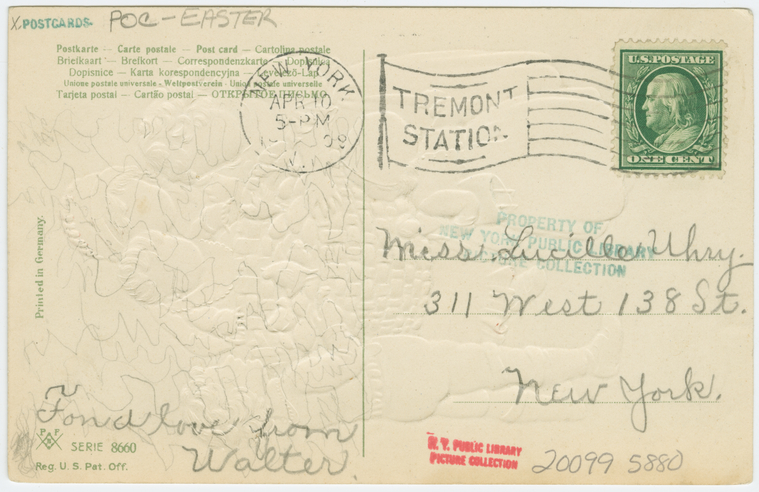 XPOSTCARDS- POC-EASTER
Postkarte – Carte postale – Post card – Cartolina postale
Briefkaart – Brefkort – Correspondenzkarte – Dopisnica
Dopisnice – Karta korespondencyjna – Levelező-Lap
Unione postale universale – Weltpostverein – Union postale universelle
Tarjeta postal – Cartão postal – ОТКРЫТОЕ ПИСЬМО
NEW YORK
APR 10
5-PM
09
TREMONT
STATION
U.S. POSTAGE
ONE CENT
Printed in Germany.
PROPERTY OF
NEW YORK PUBLIC LIBRARY
PICTURE COLLECTION
Miss. Lucille Uhry.
311 West 138 St.
New York.
Fond love from
Walter
P F
SERIE 8660
Reg. U. S. Pat. Off.
N. Y. PUBLIC LIBRARY
PICTURE COLLECTION
20099 5880